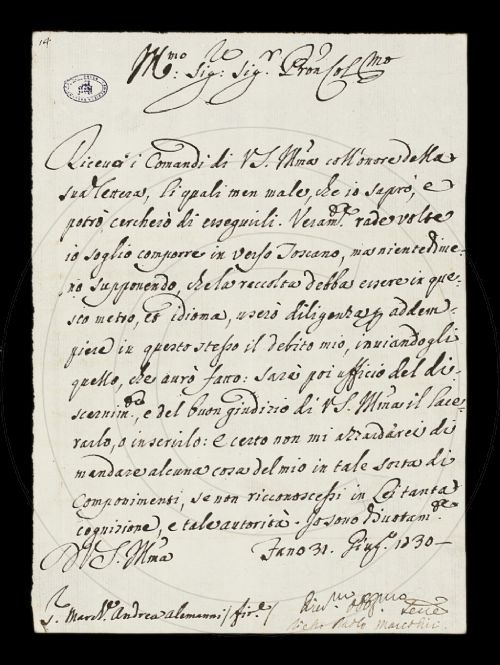 14
Ill:mo Sig:re Sig:r Pron Col:mo
Riceuei i Comandi di V.S. Ill:ma coll'onore della
sua lettera, li quali men male, che io saprò, e
potrò cercherò di eseguirli. Veram:te rade volte
io soglio comporre in verso Toscano, ma nientedime-
no supponendo, che la raccolta debba essere in que-
sto metro, ed idioma, userò diligenza p addem-
piere in questo stesso il debito mio, inviandogli
quello, che aurò fatto: sarà poi ufficio del di-
scernim:to, e del buon giudizio di V.S. Ill:ma il lace-
rarlo, o inserirlo: e certo non mi azzardarei di
mandare alcuna cosa del mio in tale sorta di
Componimenti, se non riconoscessi in Lei tanta
cognizione, e tale autorità. Io sono divotam:te
D V.S. Ill:ma Fano 31. Giug:o 1730
S. March:e Andrea Alemanni / Fir:e /
Div:mo obbl:mo Serre
Paolo